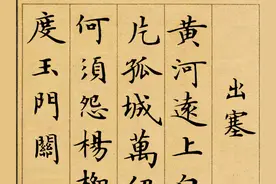 出塞
黃河遠上
片孤城萬
何須怨楊柳
度玉門關